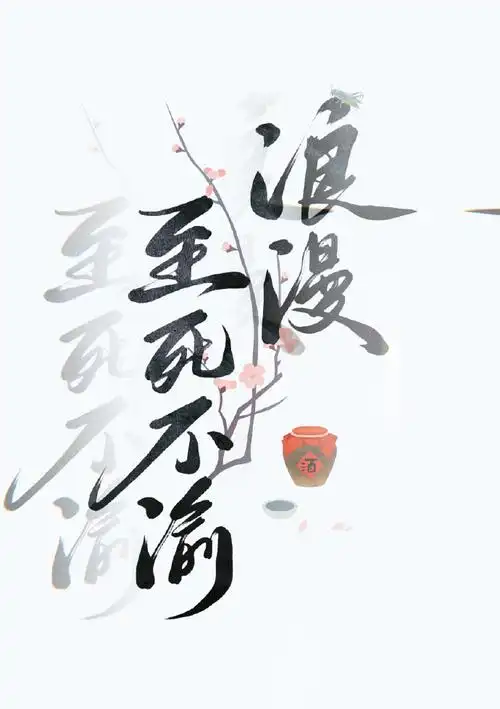 浪漫
至死不渝
至死不渝
酒